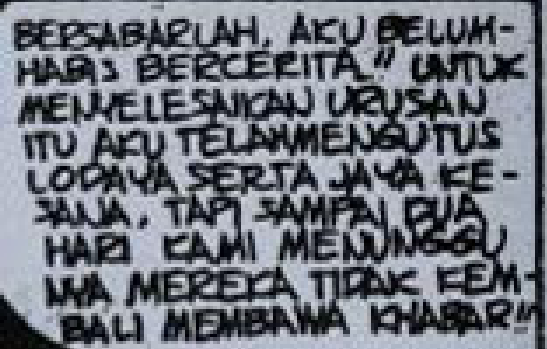 BERSABARLAH, AKU BELUM-
HABIS BERCERITA" UNTUK
MENYELESAIKAN URUSAN
ITU AKU TELAH MENGUTUS
LODAYA SERTA JAYA KE-
SANA, TAPI SAMPAI DUA
HARI KAMI MENUNGGU
NYA MEREKA TIDAK KEM-
BALI MEMBAWA KHABAR!!